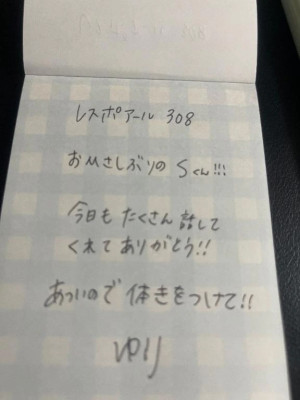 レスポアール 308
おひさしぶりの Sくん!!!
今日も たくさん 話して
くれて ありがとう!!
あついので 体きをつけて!!
ゆり